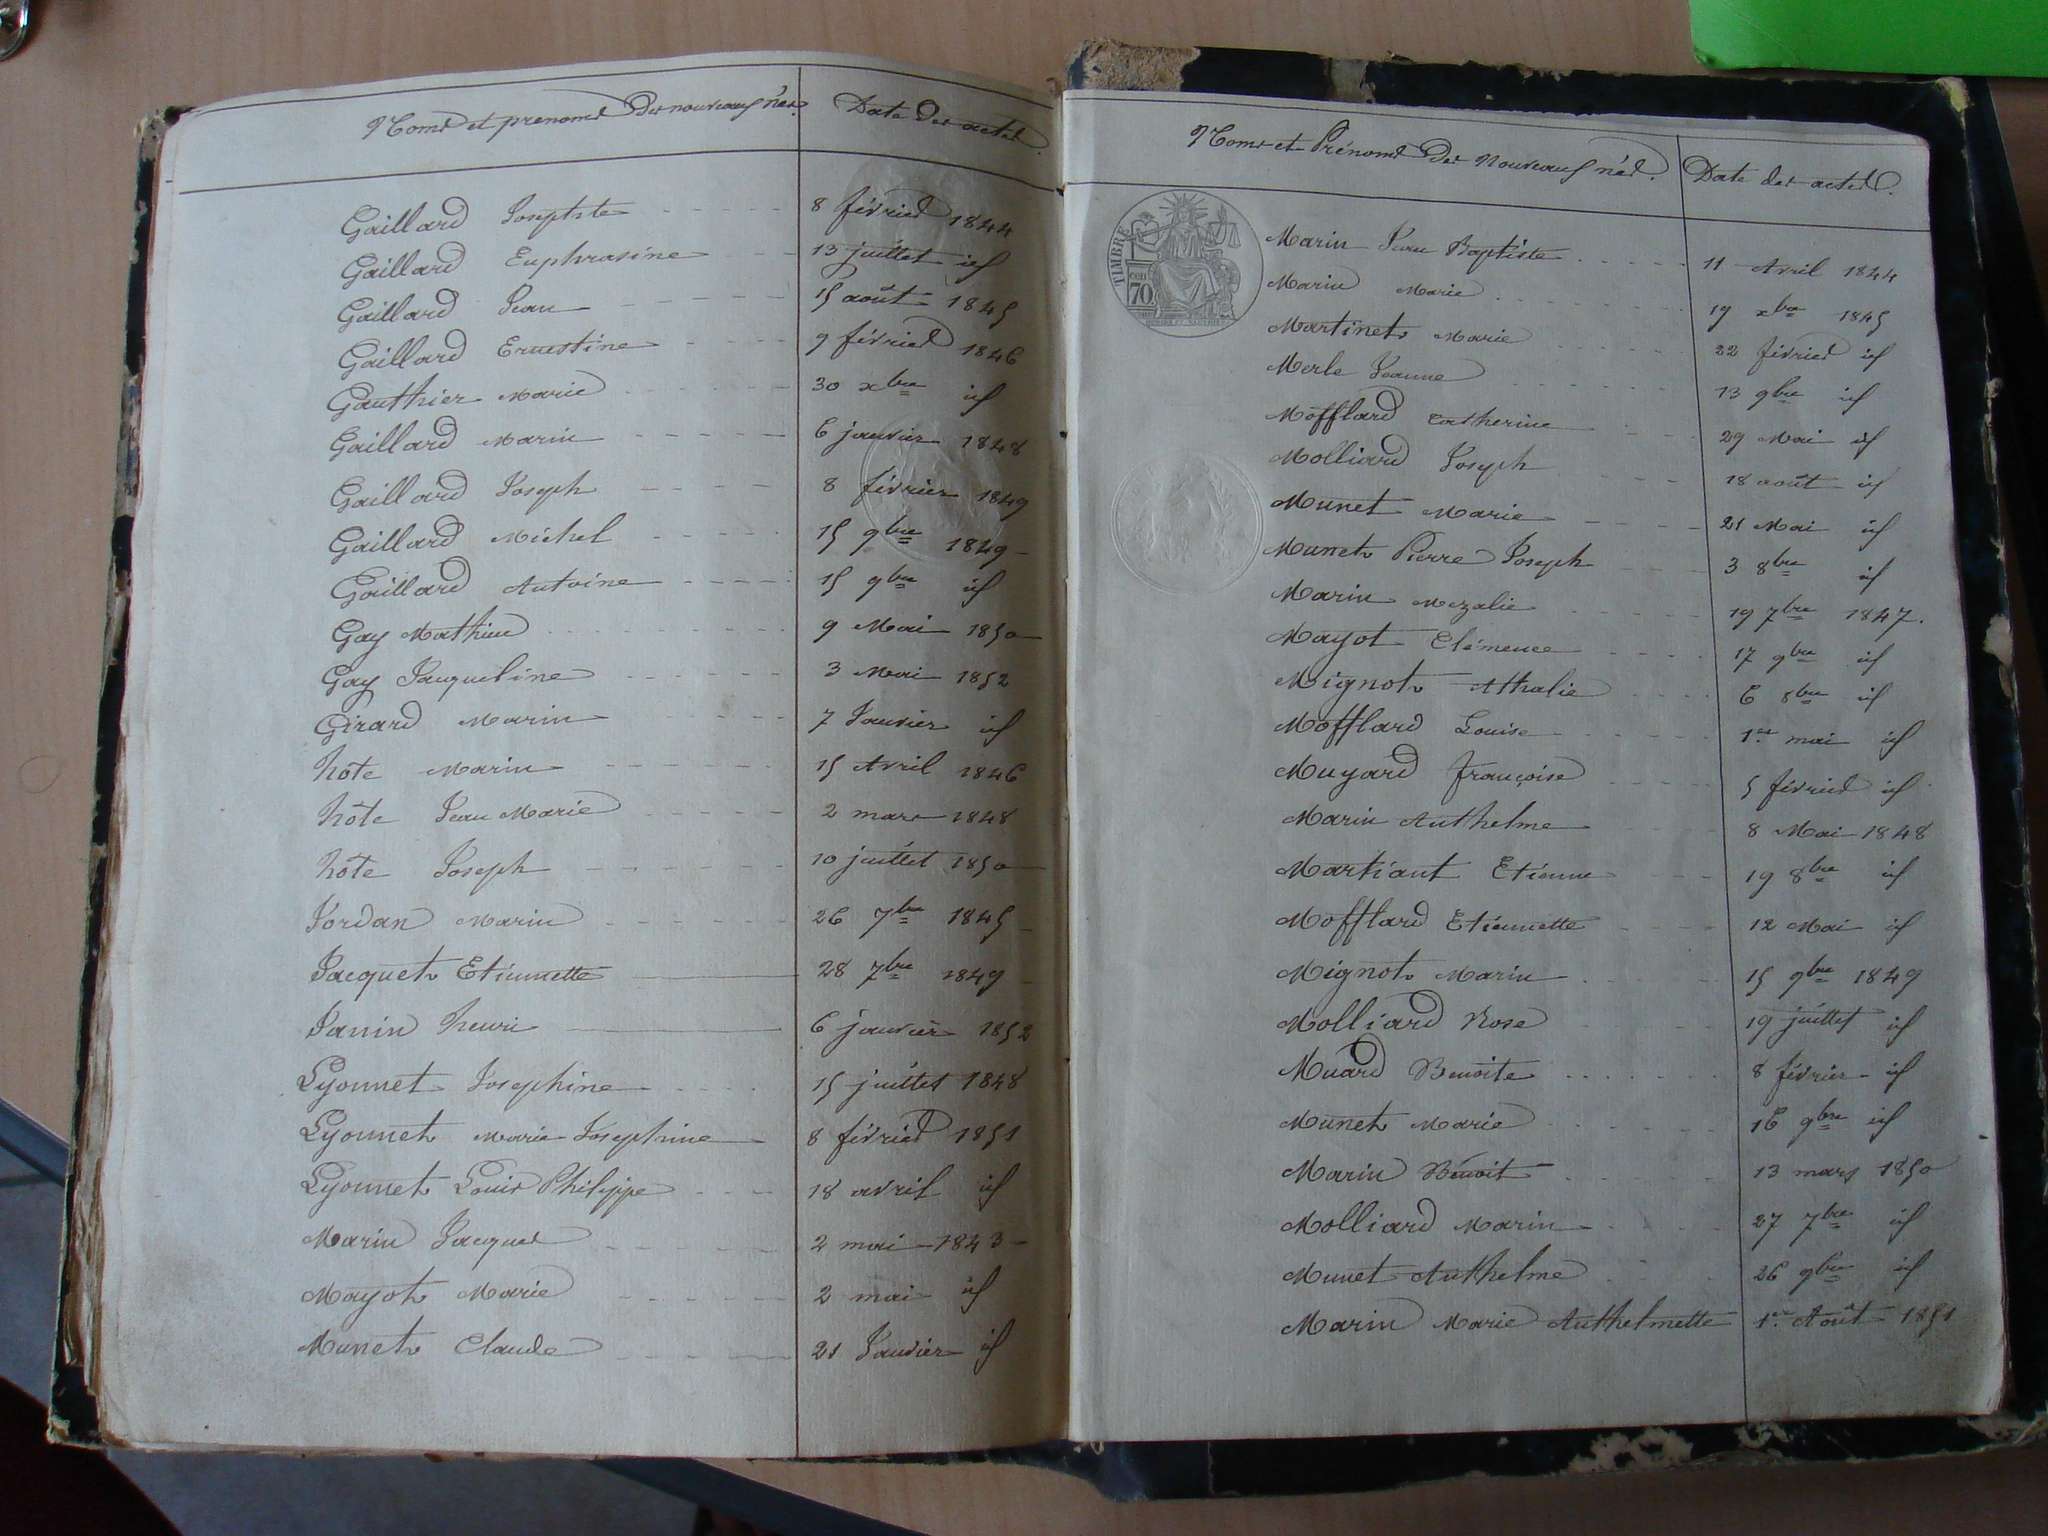 Noms et prenoms des nouveaux nés. Date des actes.
Gaillard Josephte 8 février 1844
Gaillard Euphrasine 13 juillet id
Gaillard Jean 15 août 1845
Gaillard Ernestine 9 février 1846
Gauthier Marie 30 xbre id
Gaillard Marin 6 janvier 1848
Gaillard Joseph 8 février 1849
Gaillard Michel 15 9bre 1849
Gaillard Antoine 15 9bre id
Gay Mathieu 9 Mai 1850
Gay Jacqueline 3 Mai 1852
Girard Marin 7 Janvier id
hôte Marin 15 Avril 1846
hôte Jean Marie 2 mars 1848
hôte Joseph 10 juillet 1850
Jordan Marin 26 7bre 1845
Jacquet Etiennette 28 7bre 1849
Janin henri 6 janvier 1852
Lyonnet Josephine 15 juillet 1848
Lyonnet Marie Josephine 8 février 1851
Lyonnet Louis Philippe 18 avril id
Marin Jacques 2 mai 1843
Mayot Marie 2 mai id
Munet Claude 21 Janvier id
Noms et Prénoms des Nouveaux nés. Date des actes.
TIMBRE
70
Marin Jean Baptiste 11 Avril 1844
Marin Marie 19 xbre 1845
Martinet Marie 22 février id
Merle Jeanne 13 9bre id
Mofflard Catherine 29 Mai id
Molliard Joseph 18 août id
Munet Marie 21 Mai id
Munet Pierre Joseph 3 8bre id
Marin Mezalie 19 7bre 1847.
Mayot Clémence 17 9bre id
Mignot Athalie 6 8bre id
Mofflard Louise 1er mai id
Muyard françoise 5 février id
Marin Anthelme 8 Mai 1848
Martiant Etienne 19 8bre id
Mofflard Etiennette 12 Mai id
Mignot Marin 15 9bre 1849
Molliard Rose 19 juillet id
Muard Benoite 8 février id
Munet Marie 16 9bre id
Marin Benoit 13 mars 1850
Molliard Marin 27 7bre id
Munet Anthelme 26 9bre id
Marin Marie Anthelmette 1er Août 1851